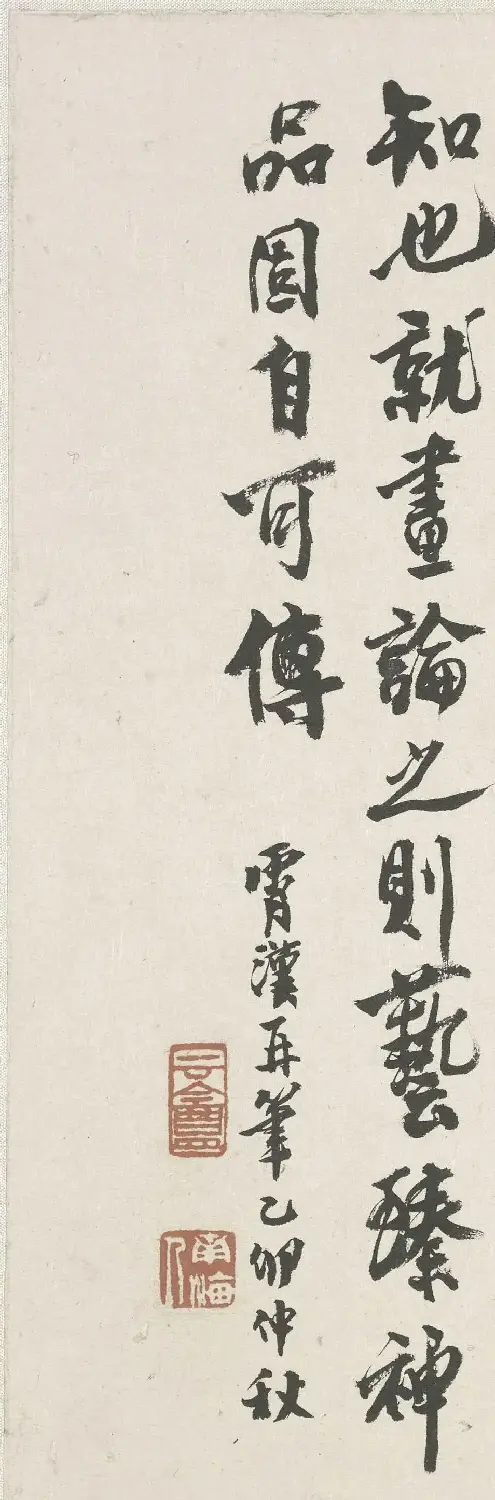 知也就畫論之則藝臻神
品固自可傳
霄漢再筆乙卯仲秋
南海人